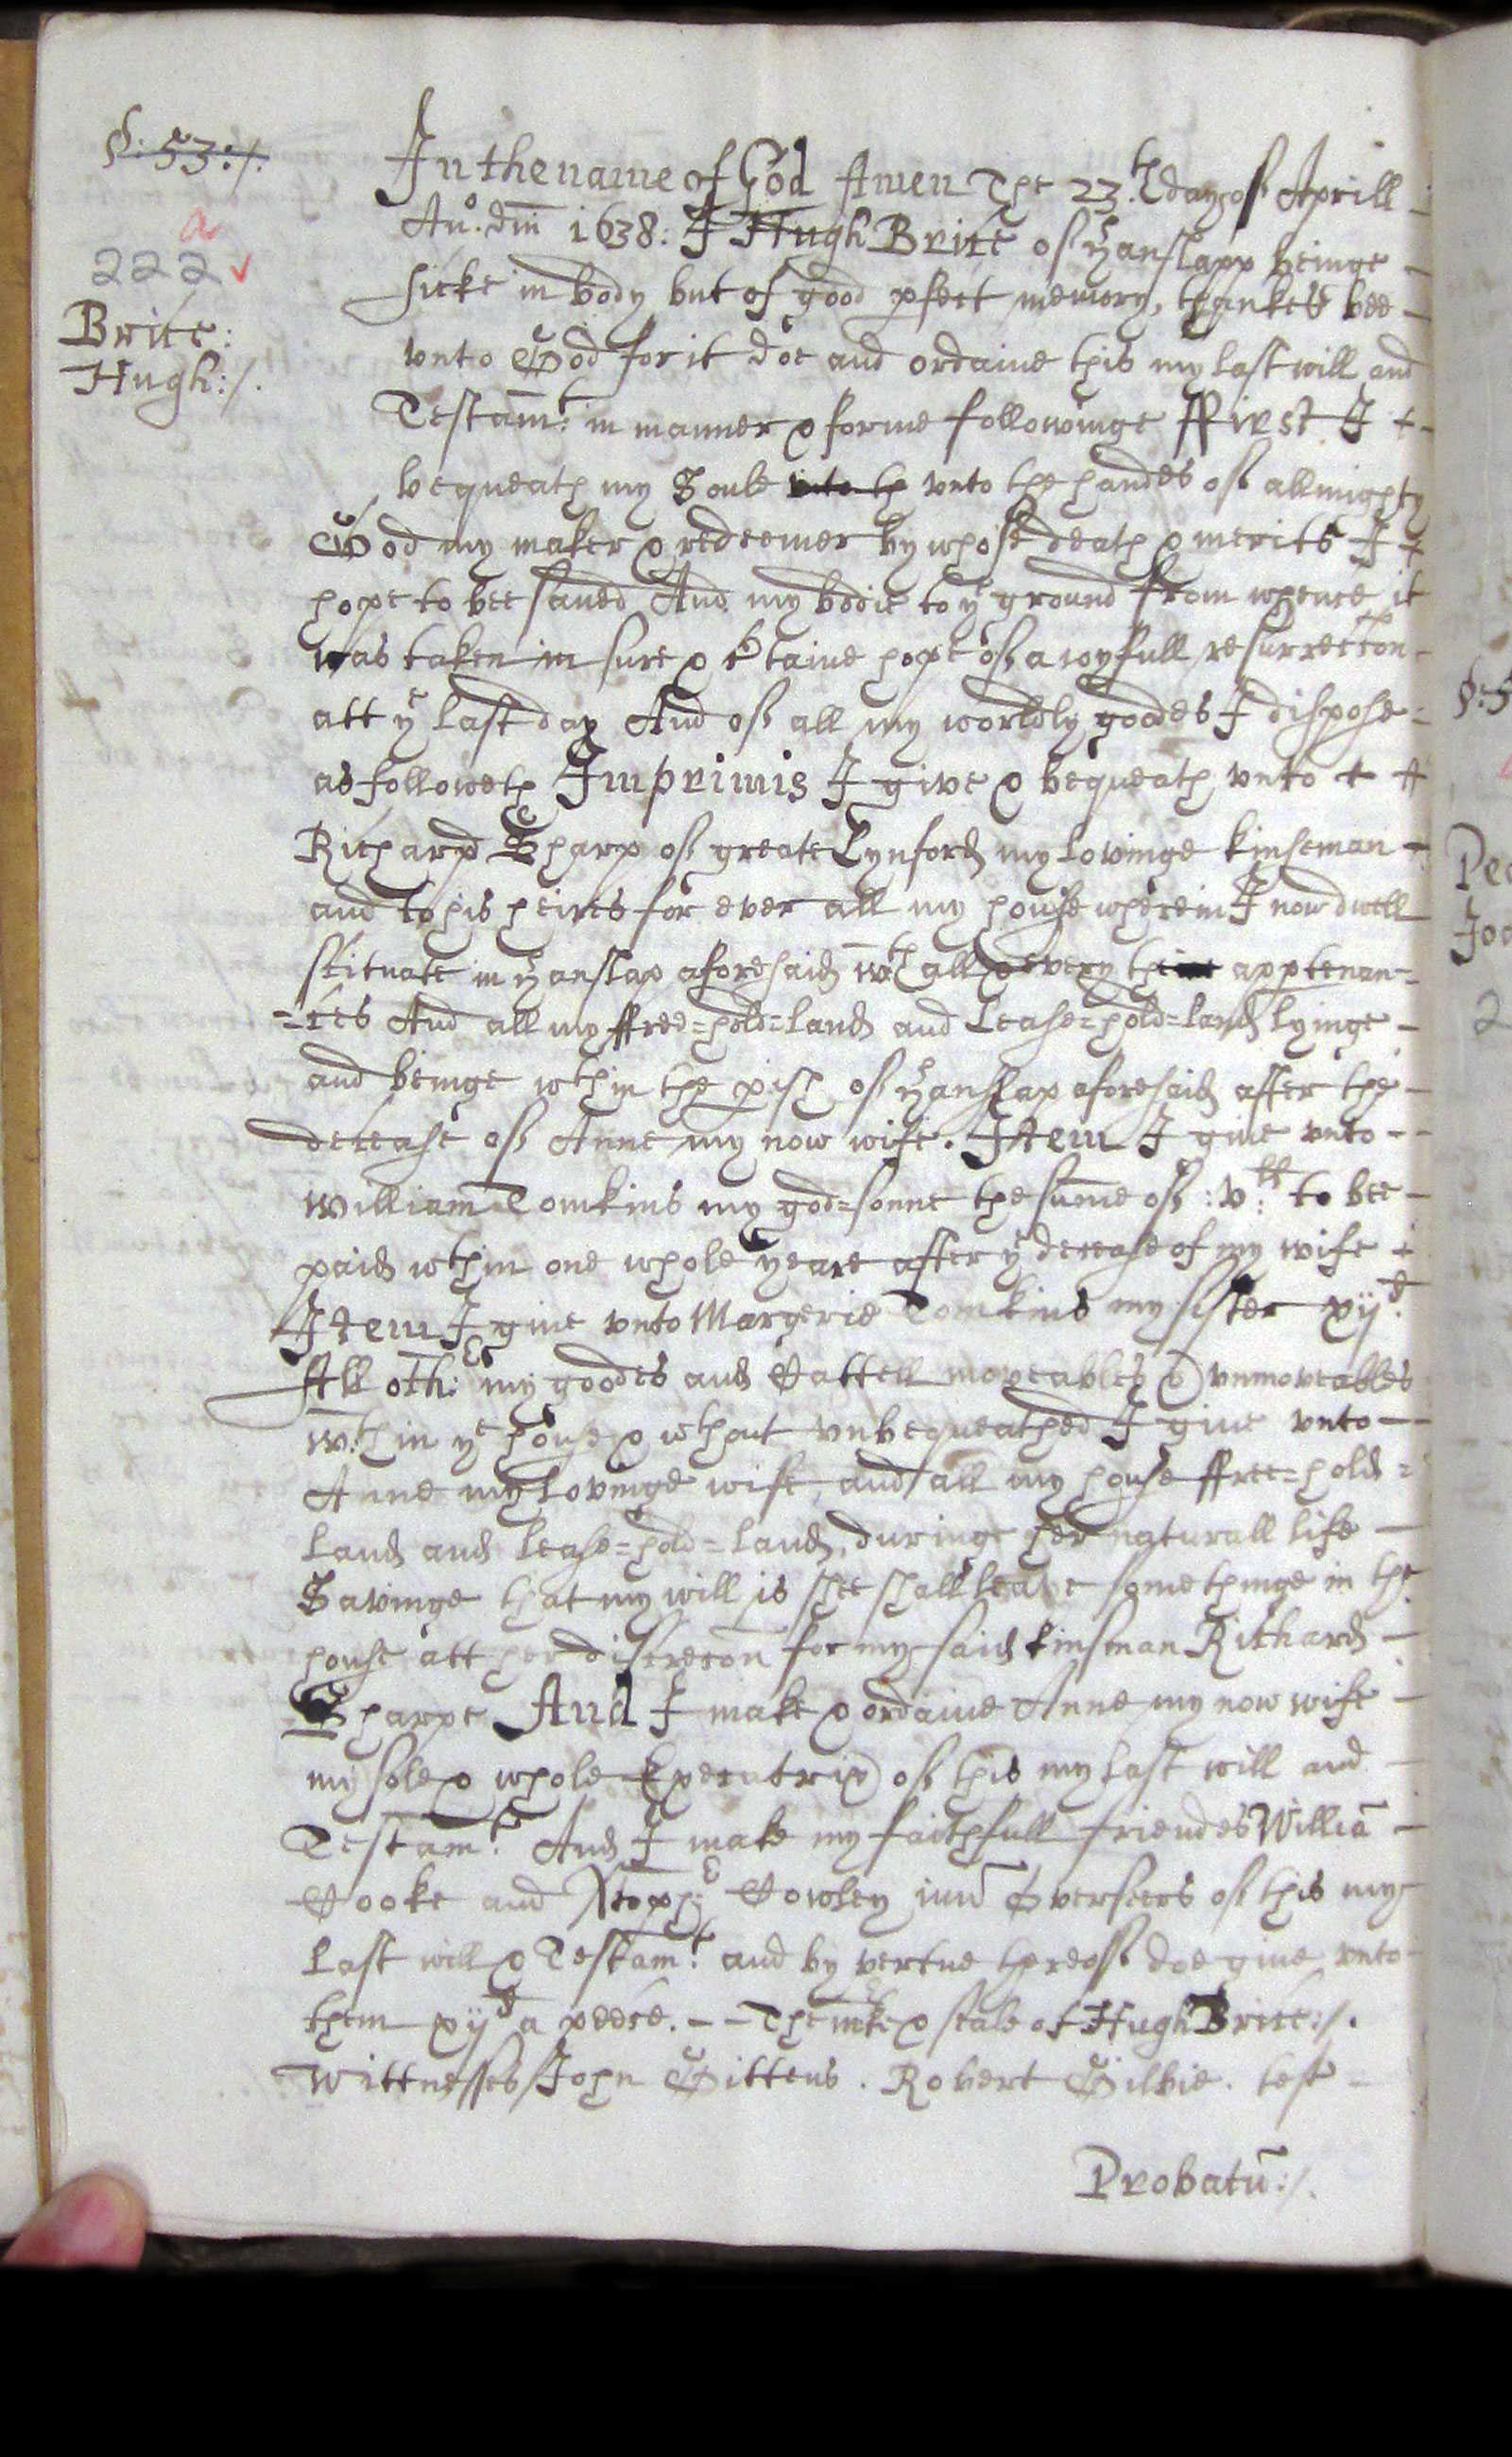 §: 53:/.
a
222 ✓
Brice:
Hugh:/.
In the name of God Amen The 23.th day of Aprill
An.o dm̄ 1638: I Hugh Brice of Hanslapp beinge
sicke in body but of good pfect memory, thankes bee
vnto God for it doe and ordaine this my last will and
Testam̄.t in manner & forme followinge ffirst I
bequeath my Soule vnto th vnto the handes of allmighty
God my maker & redeemer by whose death & merits I
hope to bee saued And my bodie to ye ground from whence it
was taken in sure & c'taine hope of a ioyfull resurreccon
att ye last day And of all my worldly goodes I dispose
as followeth Imprimis I give & bequeath vnto
Richard Sharp of greate Lynford my lovinge kinseman
and to his heires for ever all my house wherein I now dwell
scituate in Hanslap aforesaid wth all & every the apptenan=
=ces And all my ffree=hold=land and Lease=hold=land lyinge
and beinge wthin the pish of Hanslap aforesaid after the
decease of Anne my now wife. Item I giue vnto
William Tomkins my god=sonne the sum̄e of :v:ll to bee
paid wthin one whole yeare after ye decease of my wife
Item I giue vnto Margerie Tomkins my sister xijd.
All oth:er my goodes and Cattell moveables & vnmoveables
w.thin ye house & wthout vnbequeathed I giue vnto
Anne my lovinge wife, and all my house ffree=hold=
land and lease=hold=land, duringe her naturall life
Savinge that my will is shee shall leave some thinge in the
house att her discrecon̄ for my said kinsman Richard
Sharpe And I make & ordaine Anne my now wife
my sole & whole Executrix of this my last will and
Testam.t And I make my faithfull friendes Williā
Cooke and Xtoph:er Cowley iun̄ Overseers of this my
last will & Testam.t and by vertue thereof doe giue vnto
them xijd a peece. - - The m̄ke & seale of Hugh Brice:/.
Wittnesses John Gittens . Robert Gilbie . test =
Probatū:/.